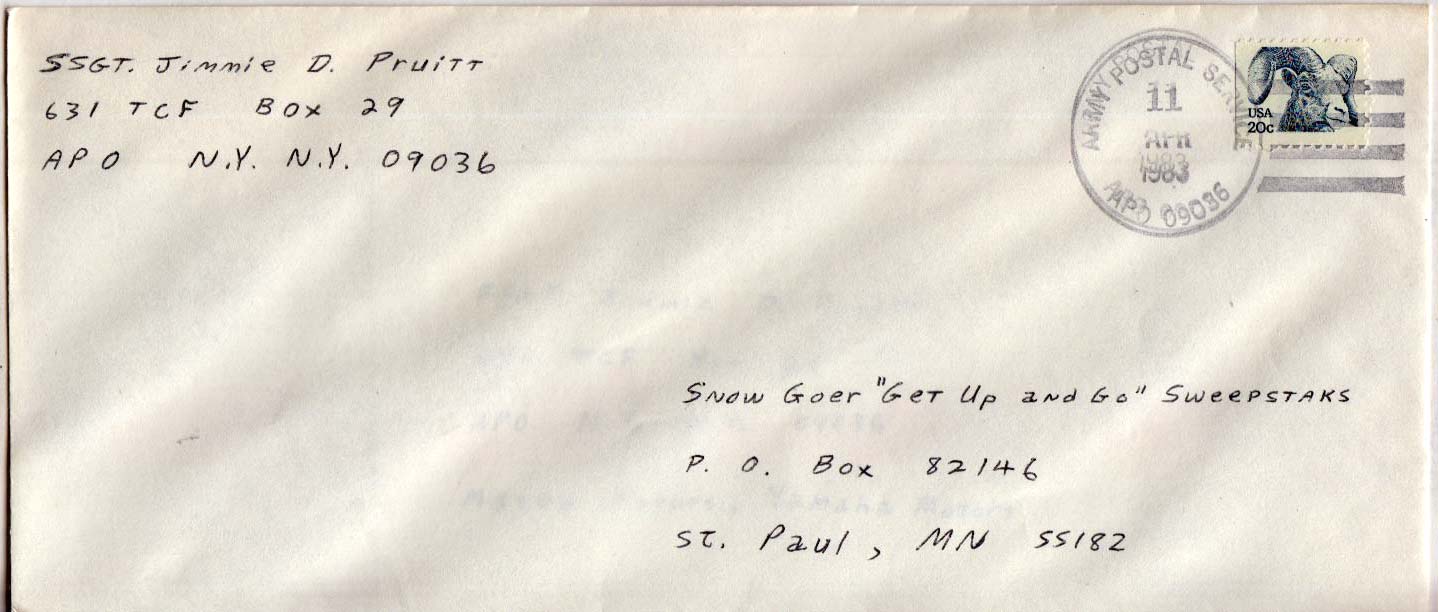 SSGT. Jimmie D. Pruitt
631 TCF Box 29
APO N.Y. N.Y. 09036
ARMY POSTAL SERVICE
11
APR
1983
APO 09036
USA
20c
Snow Goer "Get Up and Go" Sweepstaks
P. O. Box 82146
St. Paul, MN 55182
TCF
APO 09036
Yamaha Motors